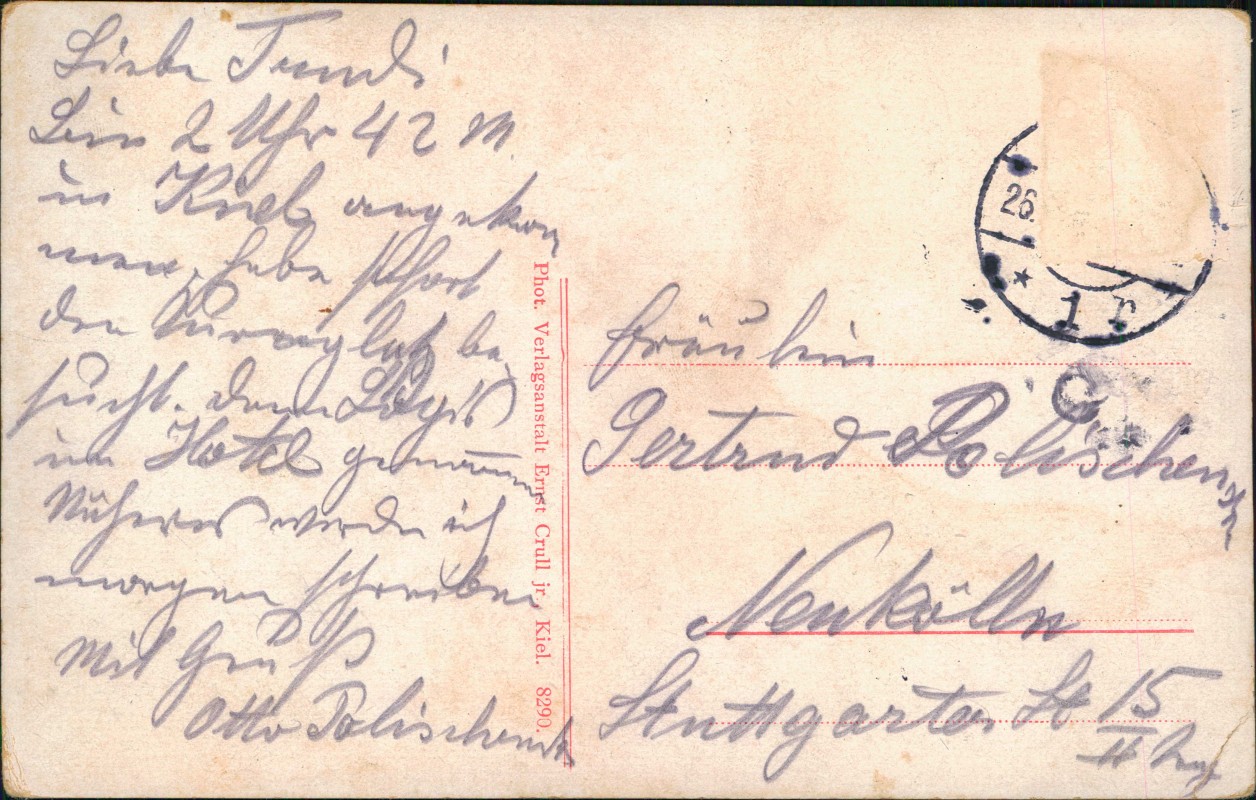 Liebe Trudi
Bin 2 Uhr 42 M
in Kiel angekom
men, habe sofort
den be
sucht. dann Logis
im Hotel genommen
Näheres werde ich
morgen schreiben
Mit Gruß
Otto
Phot. Verlagsanstalt Ernst Crull jr., Kiel. 8290.
26.
* 1 r
Fräulein
Gertrud
Neukölln
Stuttgarter St 15
II